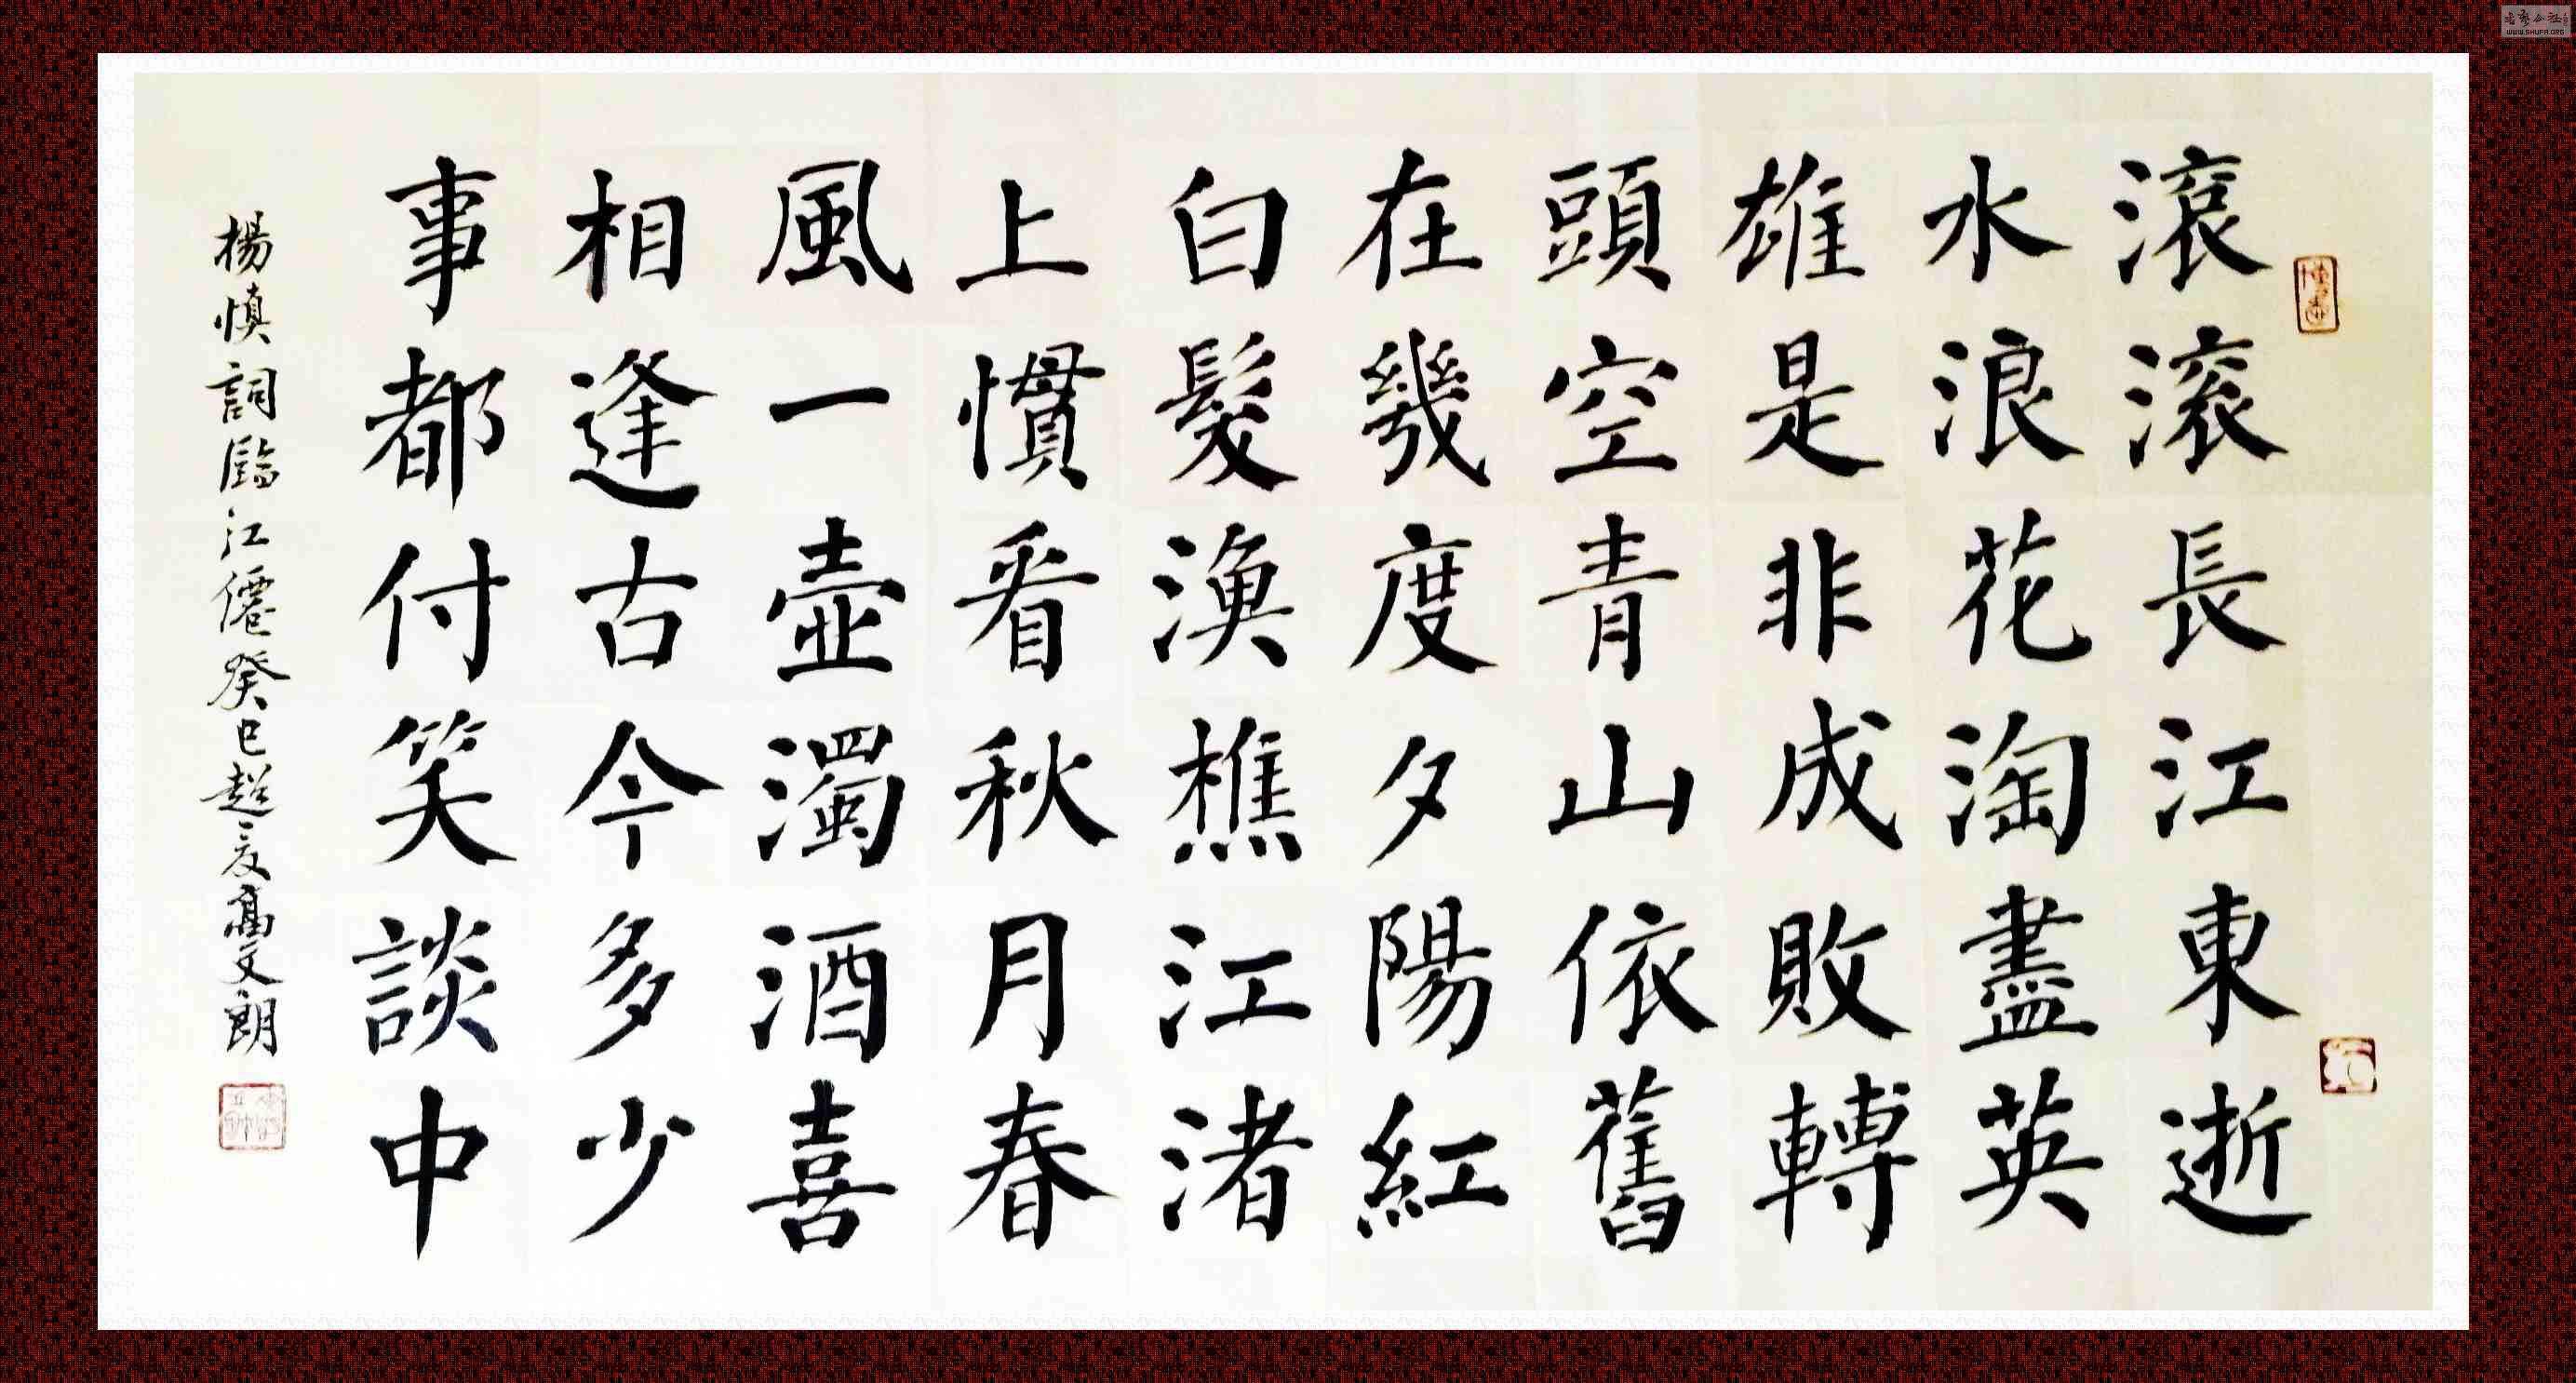 滾滾長江東逝
水浪花淘盡英
雄是非成敗轉
頭空青山依舊
在幾度夕陽紅
白髮漁樵江渚
上慣看秋月春
風一壺濁酒喜
相逢古今多少
事都付笑談中
楊慎詞臨江僊癸巳趙文高文朗
WWW.SHUFA.ORG